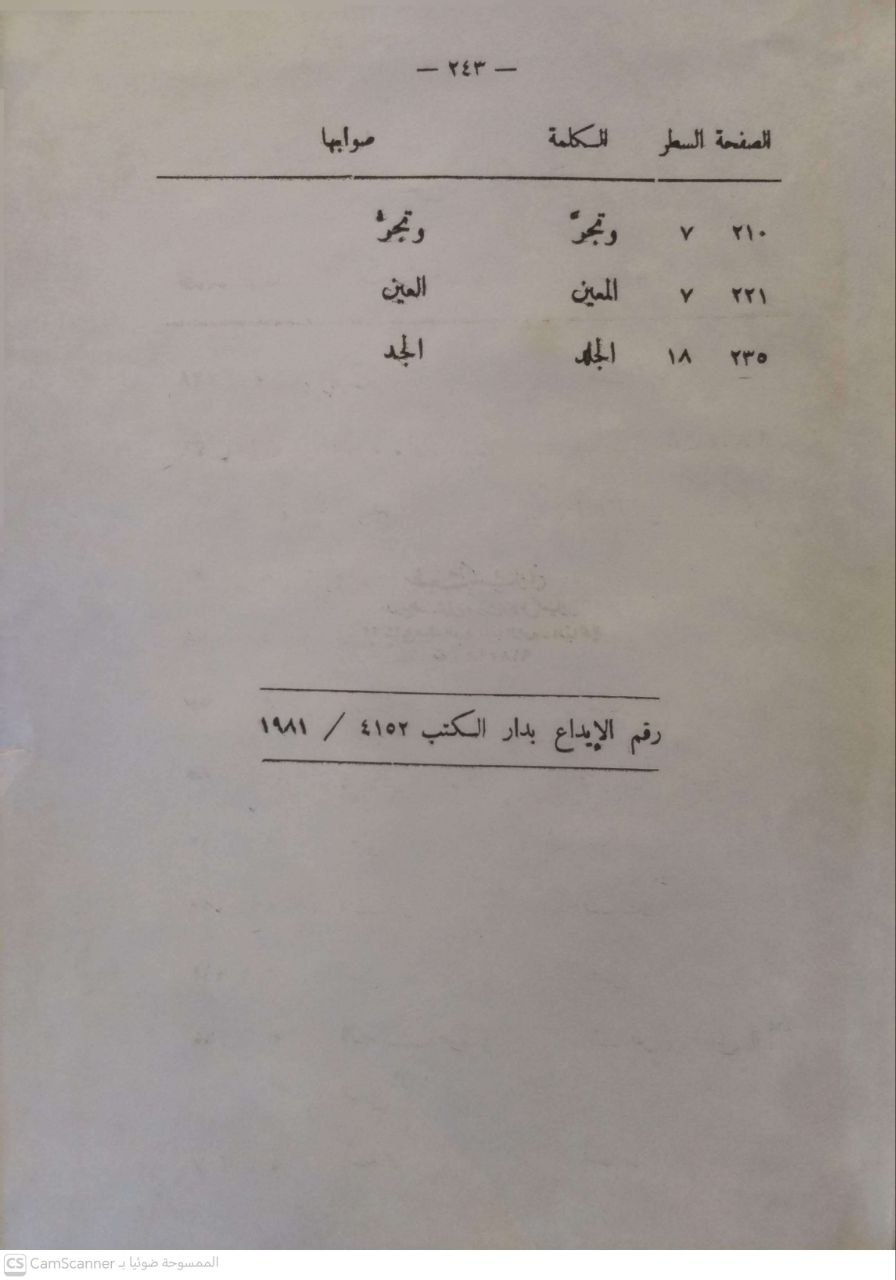 — ٢٤٣ —
الصفحة السطر الكلمة صوابها
٢١٠ ٧ وتجرَّ وتجرُّ
٢٢١ ٧ المعين العين
٢٣٥ ١٨ الجلد الجد
رقم الإيداع بدار الكتب ٤١٥٢ / ١٩٨١
CS CamScanner الممسوحة ضوئيا بـ